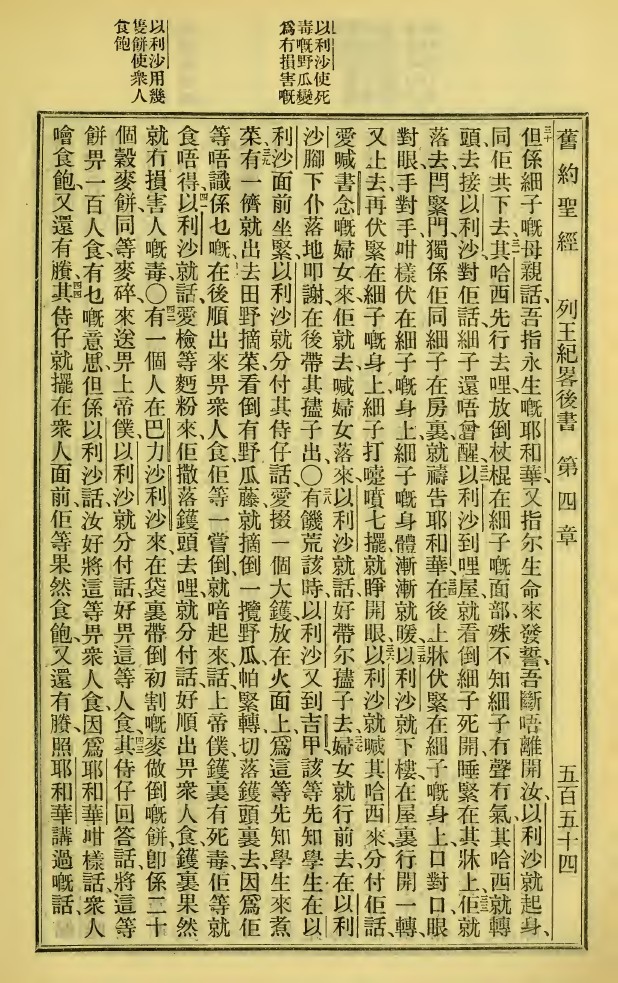 以利沙使死
毒嘅野瓜變
爲冇損害嘅
以利沙用幾
隻餅使衆人
食飽
舊約聖經 列王紀畧後書 第四章 五百五十四
三十但係細子嘅母親話、吾指永生嘅耶和華、又指尔生命來發誓、吾斷唔離開汝、以利沙就起身、
同佢共下去、三一其哈西先行去哩、放倒杖棍在細子嘅面部、殊不知細子冇聲冇氣、其哈西就轉
頭去接以利沙、對佢話、細子還唔曾醒、三二以利沙到哩屋、就看倒細子死開、睡緊在其牀上、三三佢就
落去、閂緊門、獨係佢同細子在房裏、就禱告耶和華、三四在後上牀伏緊在細子嘅身上、口對口、眼
對眼、手對手、咁樣伏在細子嘅身上、細子嘅身體漸漸就暖、三五以利沙就下樓、在屋裏行開一轉、
又上去、再伏緊在細子嘅身上、細子打嚏噴七擺、就睜開眼、三六以利沙就喊其哈西來、分付佢話、
愛喊書念嘅婦女來、佢就去喊婦女落來、以利沙就話、好帶尔孻子去、三七婦女就行前去、在以利
沙腳下仆落地叩謝、在後帶其孻子出、〇三八有饑荒該時、以利沙又到吉甲、該等先知學生在以
利沙面前坐緊、以利沙就分付其侍仔話、愛掇一個大鑊放在火面上、爲這等先知學生來煮
菜、三九有一儕就出去田野摘菜、看倒有野瓜藤、就摘倒一攬野瓜、帕緊轉、切落鑊頭裏去、因爲佢
等唔識係乜嘅、四十在後順出來畀衆人食、佢等一嘗倒、就喑起來、話、上帝僕、鑊裏有死毒、佢等就
食唔得、四一以利沙就話、愛檢等麪粉來、佢撒落鑊頭去哩、就分付話、好順出畀衆人食、鑊裏果然
就冇損害人嘅毒、〇四二有一個人在巴力沙利沙來、在袋裏帶倒初割嘅麥做倒嘅餅、卽係二十
個穀麥餅、同等麥碎、來送畀上帝僕、以利沙就分付話、好畀這等人食、四三其侍仔回答話、將這等
餅畀一百人食、有乜嘅意思、但係以利沙話、汝好將這等畀衆人食、因爲耶和華咁樣話、衆人
噲食飽、又還有賸、四四其侍仔就擺在衆人面前、佢等果然食飽、又還有賸、照耶和華講過嘅話、